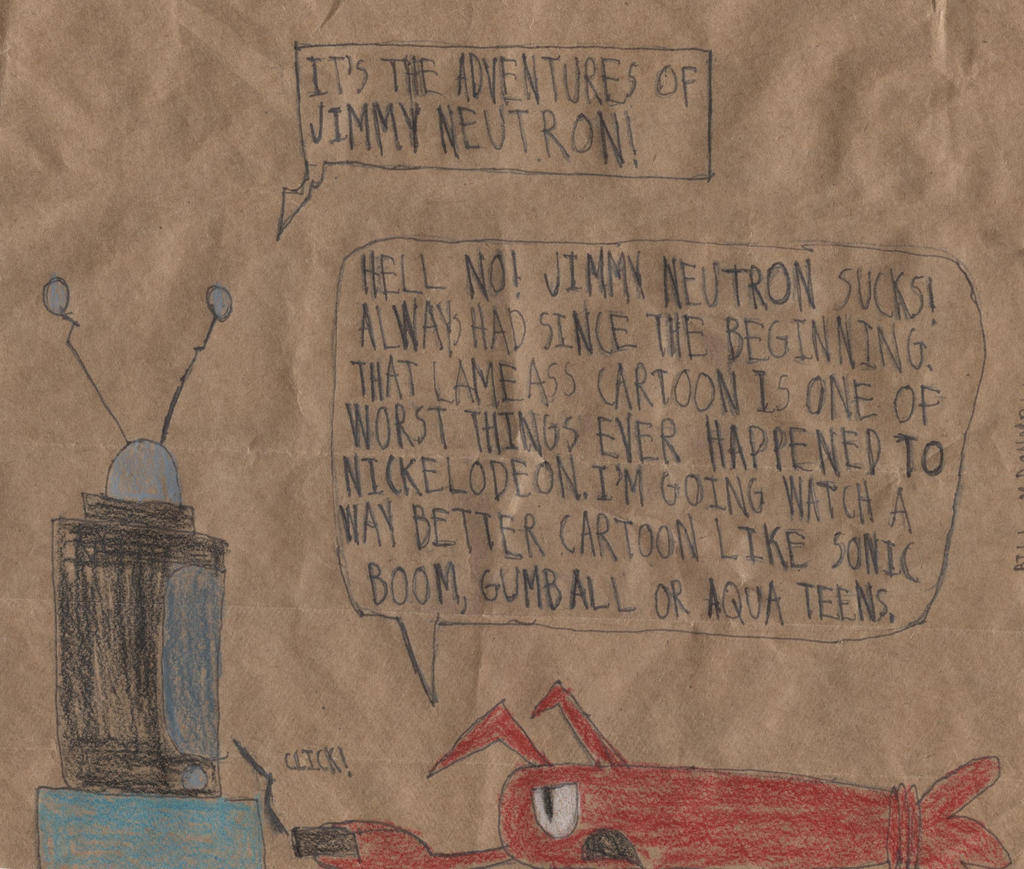 IT'S THE ADVENTURES OF
JIMMY NEUTRON!
HELL NO! JIMMY NEUTRON SUCKS!
ALWAYS HAD SINCE THE BEGINNING.
THAT LAMEASS CARTOON IS ONE OF
WORST THINGS EVER HAPPENED TO
NICKELODEON. I'M GOING WATCH A
WAY BETTER CARTOON LIKE SONIC
BOOM, GUMBALL OR AQUA TEENS.
CLICK!
BILL